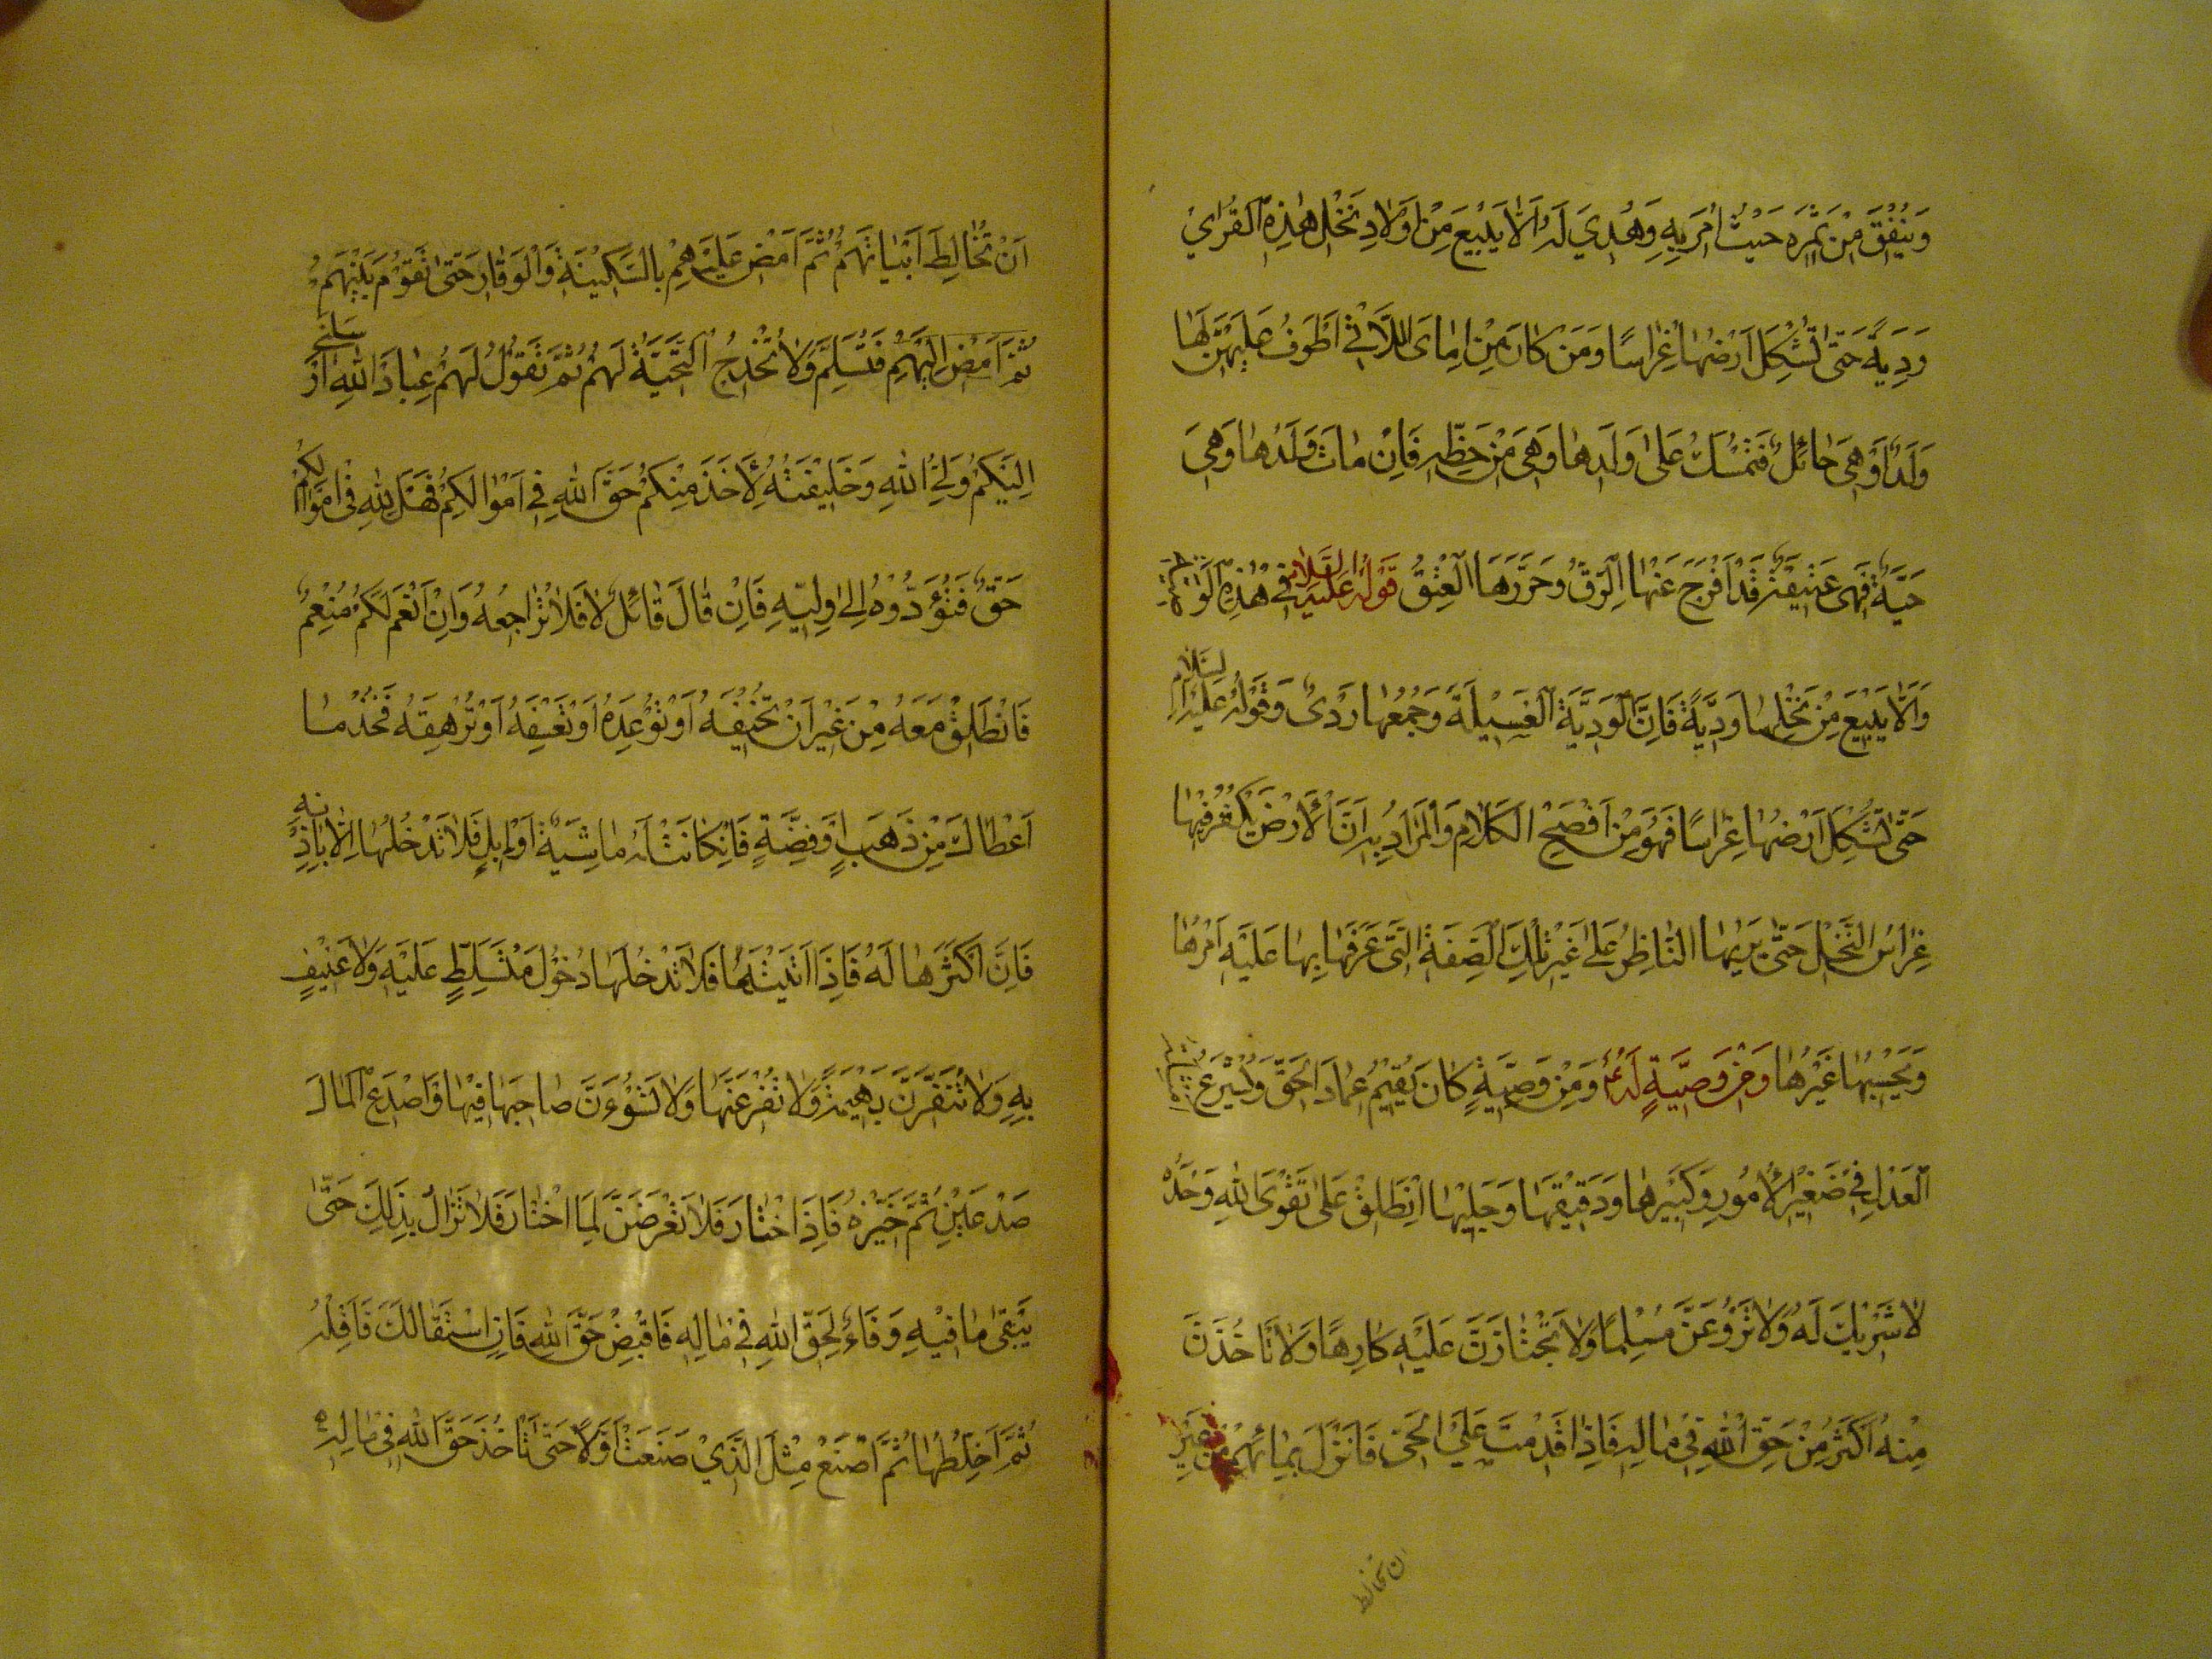 وَيُنْفِقَ مِنْ ثَمَرِهِ حَيْثُ أُمِرَ بِهِ وَهُدِيَ لَهُ اَلَّا يَبِيعَ مِنْ اَوْلَادِ نَخْلِ هٰذِهِ الْقُرٰى
وَدِيَّةً حَتّٰى تُشْكِلَ اَرْضُهَا غِرَاسًا وَمَنْ كَانَ مِنْ اِمَائِى اللَّاتِى اَطُوفُ عَلَيْهِنَّ لَهَا
وَلَدٌ اَوْ هِىَ حَائِلٌ فَتُمْسَكُ عَلٰى وَلَدِهَا وَهِىَ مِنْ حَظِّهِ فَاِنْ مَاتَ وَلَدُهَا وَهِىَ
حَيَّةٌ فَهِىَ عَتِيقَةٌ قَدْ اَفْرَجَ عَنْهَا الرِّقُّ وَحَرَّرَهَا الْعِتْقُ قَوْلُهُ عَلَيْهِ السَّلَامُ فِى هٰذِهِ الْوَصِيَّةِ
وَاَلَّا يَبِيعَ مِنْ نَخْلِهَا وَدِيَّةً فَاِنَّ الْوَدِيَّةَ الْفَسِيلَةُ وَجَمْعُهَا وَدِىٌّ وَقَوْلُهُ عَلَيْهِ السَّلَامُ
حَتّٰى تُشْكِلَ اَرْضُهَا غِرَاسًا فَهُوَ مِنْ اَفْصَحِ الْكَلَامِ وَالْمُرَادُ بِهِ اَنَّ الْاَرْضَ يَكْثُرُ فِيهَا
غِرَاسُ النَّخْلِ حَتّٰى يَرَيهَا النَّاظِرُ عَلٰى غَيْرِ تِلْكَ الصِّفَةِ الَّتِى عَرَفَهَا بِهَا عَلَيْهِ اَمْرُهَا
وَيَحْسَبُهَا غَيْرَهَا وَمِنْ وَصِيَّةٍ لَهُ وَمِنْ وَصِيَّةٍ كَانَ يُقِيمُ عِمَادَ الْحَقِّ وَيُشْرِعُ
الْعَدْلِ فِى صَغِيرِ الْاُمُورِ وَكَبِيرِهَا وَدَقِيقِهَا وَجَلِيلِهَا اِنْطَلِقْ عَلٰى تَقْوَى اللّٰهِ وَحْدَهُ
لَا شَرِيكَ لَهُ وَلَا تُرَوِّعَنَّ مُسْلِمًا وَلَا تَجْتَازَنَّ عَلَيْهِ كَارِهًا وَلَا تَأْخُذَنَّ
مِنْهُ اَكْثَرَ مِنْ حَقِّ اللّٰهِ فِى مَالِهِ فَاِذَا قَدِمْتَ عَلَى الْحَىِّ فَانْزِلْ بِمَائِهِمْ مِنْ غَيْرِ
ان تخالط
اَنْ تُخَالِطَ اَبْيَاتَهُمْ ثُمَّ اَمْضِ عَلَيْهِمْ بِالسَّكِينَةِ وَالْوَقَارِ حَتّٰى تَقُومَ بَيْنَهُمْ
ثُمَّ اَمْضِ اِلَيْهِمْ فَتُسَلِّمَ وَلَا تُخْدِجُ التَّحِيَّةَ لَهُمْ ثُمَّ تَقُولُ لَهُمْ عِبَادَ اللّٰهِ اَرْسَلَنِى
اِلَيْكُمْ وَلِىُّ اللّٰهِ وَخَلِيفَتُهُ لِاٰخُذَ مِنْكُمْ حَقَّ اللّٰهِ فِى اَمْوَالِكُمْ فَهَلْ لِلّٰهِ فِى اَمْوَالِكُمْ
حَقٌّ فَتُؤَدُّوهُ اِلٰى وَلِيِّهِ فَاِنْ قَالَ قَائِلٌ لَا فَلَا تُرَاجِعْهُ وَاِنْ اَنْعَمَ لَكُمْ مُنْعِمٌ
فَانْطَلِقْ مَعَهُ مِنْ غَيْرِ اَنْ تُخِيفَهُ اَوْ تُوعِدَهُ اَوْ تَعْسِفَهُ اَوْ تُرْهِقَهُ فَخُذْ مَا
اَعْطَاكَ مِنْ ذَهَبٍ اَوْ فِضَّةٍ فَاِنْ كَانَتْ لَهُ مَاشِيَةٌ اَوْ اِبِلٌ فَلَا تَدْخُلْهَا اِلَّا بِاِذْنِهِ
فَاِنَّ اَكْثَرَهَا لَهُ فَاِذَا اَتَيْتَهَا فَلَا تَدْخُلْهَا دُخُولَ مُتَسَلِّطٍ عَلَيْهِ وَلَا عَنِيفٍ
بِهِ وَلَا تُنَفِّرَنَّ بَهِيمَةً وَلَا تُفْزِعَنَّهَا وَلَا تَسُوءَنَّ صَاحِبَهَا فِيهَا وَاصْدَعِ الْمَالَ
صَدْعَيْنِ ثُمَّ خَيِّرْهُ فَاِذَا اخْتَارَ فَلَا تَعْرِضَنَّ لِمَا اخْتَارَ فَلَا تَزَالُ بِذٰلِكَ حَتّٰى
يَبْقٰى مَا فِيهِ وَفَاءٌ لِحَقِّ اللّٰهِ فِى مَالِهِ فَاقْبِضْ حَقَّ اللّٰهِ فَاِنِ اسْتَقَالَكَ فَاَقِلْهُ
ثُمَّ اخْلِطْهَا ثُمَّ اصْنَعْ مِثْلَ الَّذِى صَنَعْتَ اَوَّلًا حَتّٰى تَأْخُذَ حَقَّ اللّٰهِ فِى مَالِهِ